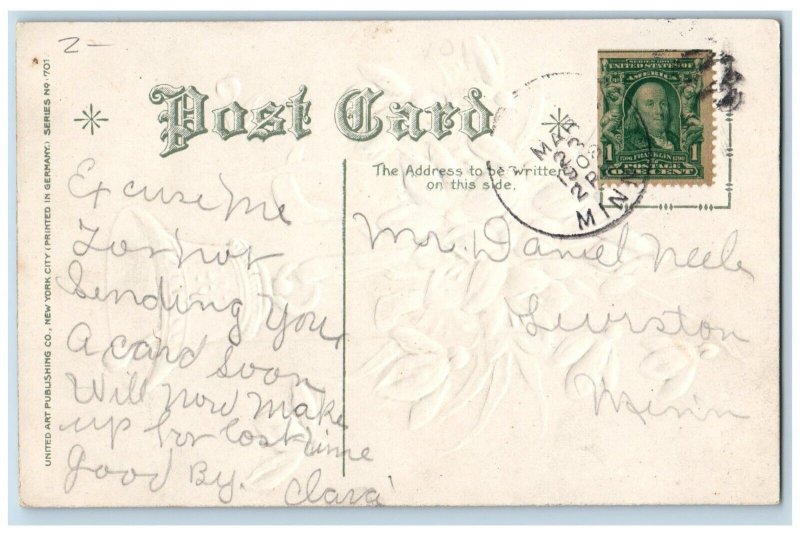 2-
Post Card
The Address to be written
on this side.
UNITED ART PUBLISHING CO., NEW YORK CITY (PRINTED IN GERMANY.) SERIES No. 701.
SERIES 1902
UNITED STATES OF
AMERICA
1 FRANKLIN 1
POSTAGE
ONE CENT
MAR
MINN
Excuse Me
For not
Sending You
A card Soon
Will now Make
up for lost time
good By. Clara
Mr. Daniel Neeb
Lewiston
Minn